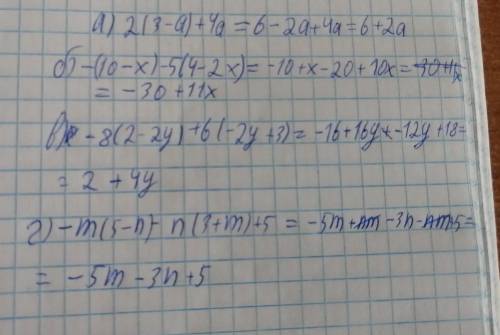 а) 2(3-a)+4a=6-2a+4a=6+2a
б) -(10-x)-5(4-2x)=-10+x-20+10x=
= -30+11x
в) -8(2-2y)+6(-2y+3)=-16+16y-12y+18=
= 2+4y
г) -m(5-n)- n(3+m)+5 = -5m+nm-3n-nm+5=
= -5m-3n+5